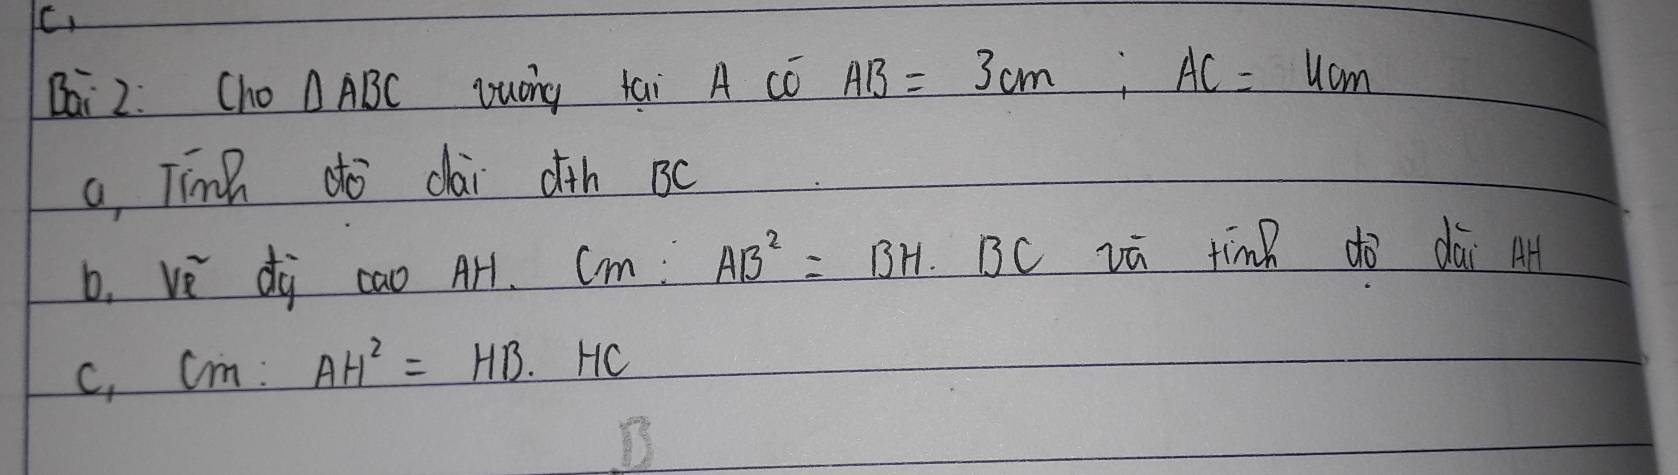 c,
Bài 2: Cho Δ ABC vuông tại A có AB = 3cm ; AC = 4cm
a, Tính độ dài đth BC
b, Vẽ đg cao AH. Cm : AB² = BH. BC và tính độ dài AH
c, Cm : AH² = HB. HC
B